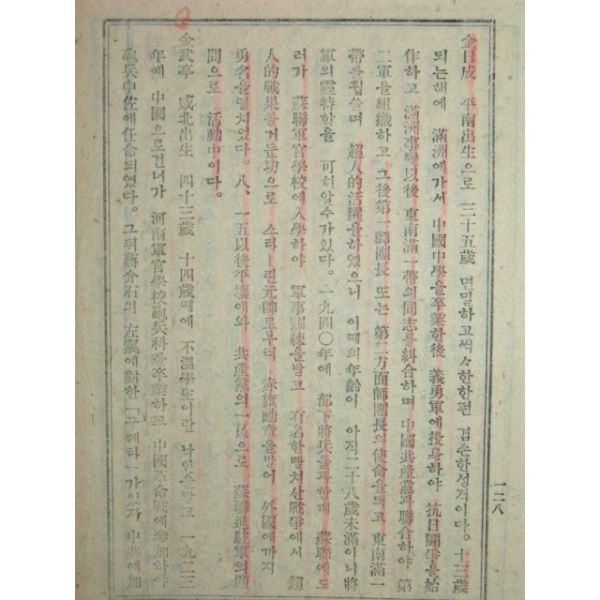 一二八
金日成 平南出生으로 三十五歲 면밀하고씩々한한편 겸손한성격이다。十三歲
되는해에 滿洲에가서 中國中學을卒業한後 義勇軍에投身하야 抗日鬪爭을始
作하고 滿洲事變以後 東南滿一帶의同志를糾合하며 中國共產黨과聯合하야 第
二軍을組織하고 그後第一師團長 또는 第二方面師團長의使命을띄고 東南滿一
帶를휩쓸며 超人的活躍을하였으니 이때의年齡이 아직二十八歲未滿이니將
軍의靈特함을 可히알수가있다。一九四〇年에 部下將兵 蘇聯에도
러가 蘇聯軍官學校에入學하야 軍事訓練을받고 有名한빨치산戰爭에서 超
人的戰果를거둔功으로 스타ー린元帥로부터 赤旗勳章을받어 外國에까지
勇名을떨치었다。八、一五以後平壤에와 共產黨의一 으로 蘇聯進駐軍의顧
問으로 活動中이다。
金武亭 咸北出生 四十三歲 十四歲때에 不溫學生이란 낙인을받고 一九二三
年에 中國으로건너가 河南軍官學校砲兵科를卒業하고 中國革命戰에參加하야
砲兵中佐에任命되였다。그뒤蔣介石의 左翼에對한「구데타」가있자 中共에加